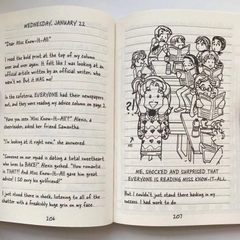 WEDNESDAY, JANUARY 22
"Dear Miss Know-It-All!"
I read the bold print at the top of my column
over and over again. It felt like I was looking at an
official article written by an official writer, who
was not me. But it WAS me!
In the cafeteria, EVERYONE had their newspapers
out, and they were reading my advice column on page 2.
"Have you seen 'Miss Know-It-All'?" Alexis, a
cheerleader, asked her friend Samantha.
"I'm looking at it right now," she answered.
"Someone in our squad is dating a total sweetheart
who loves to BAKE!" Alexis gushed. "How romantic
is THAT?! And Miss Know-It-All gave him great
advice! SO sorry he girlfriend!"
I just stood there in shock, listening to all of the
chatter with a freakishly huge grin on my face.
206
ME, SHOCKED AND SURPRISED THAT
EVERYONE IS READING MISS KNOW-IT-ALL
But I couldn't just stand there basking in my
success. I had work to do.
207